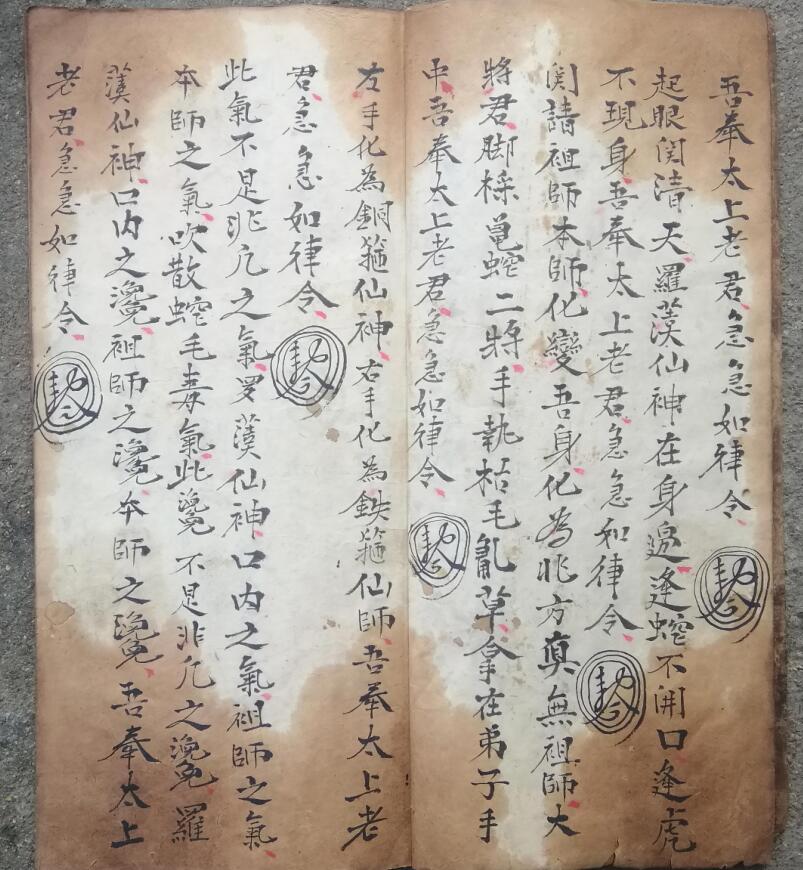 吾奉太上老君急急如律令
起眼関清天羅漢仙神在身邉逢蛇不開口逢虎
不現身吾奉太上老君急急如律令
関請祖師本師化變吾身化為北方真無祖師大
將君脚採黽蛇二將手執枯毛亂草拿在弟子手
中吾奉太上老君急急如律令
左手化為銅箍仙神右手化為鉄箍仙師吾奉太上老
君急急如律令
此氣不是非凡之氣羅漢仙神口内之氣祖師之氣
本師之氣吹散蛇毛毒氣此不是非凡之羅
漢仙神口内之祖師之本師之吾奉太上
老君急急如律令